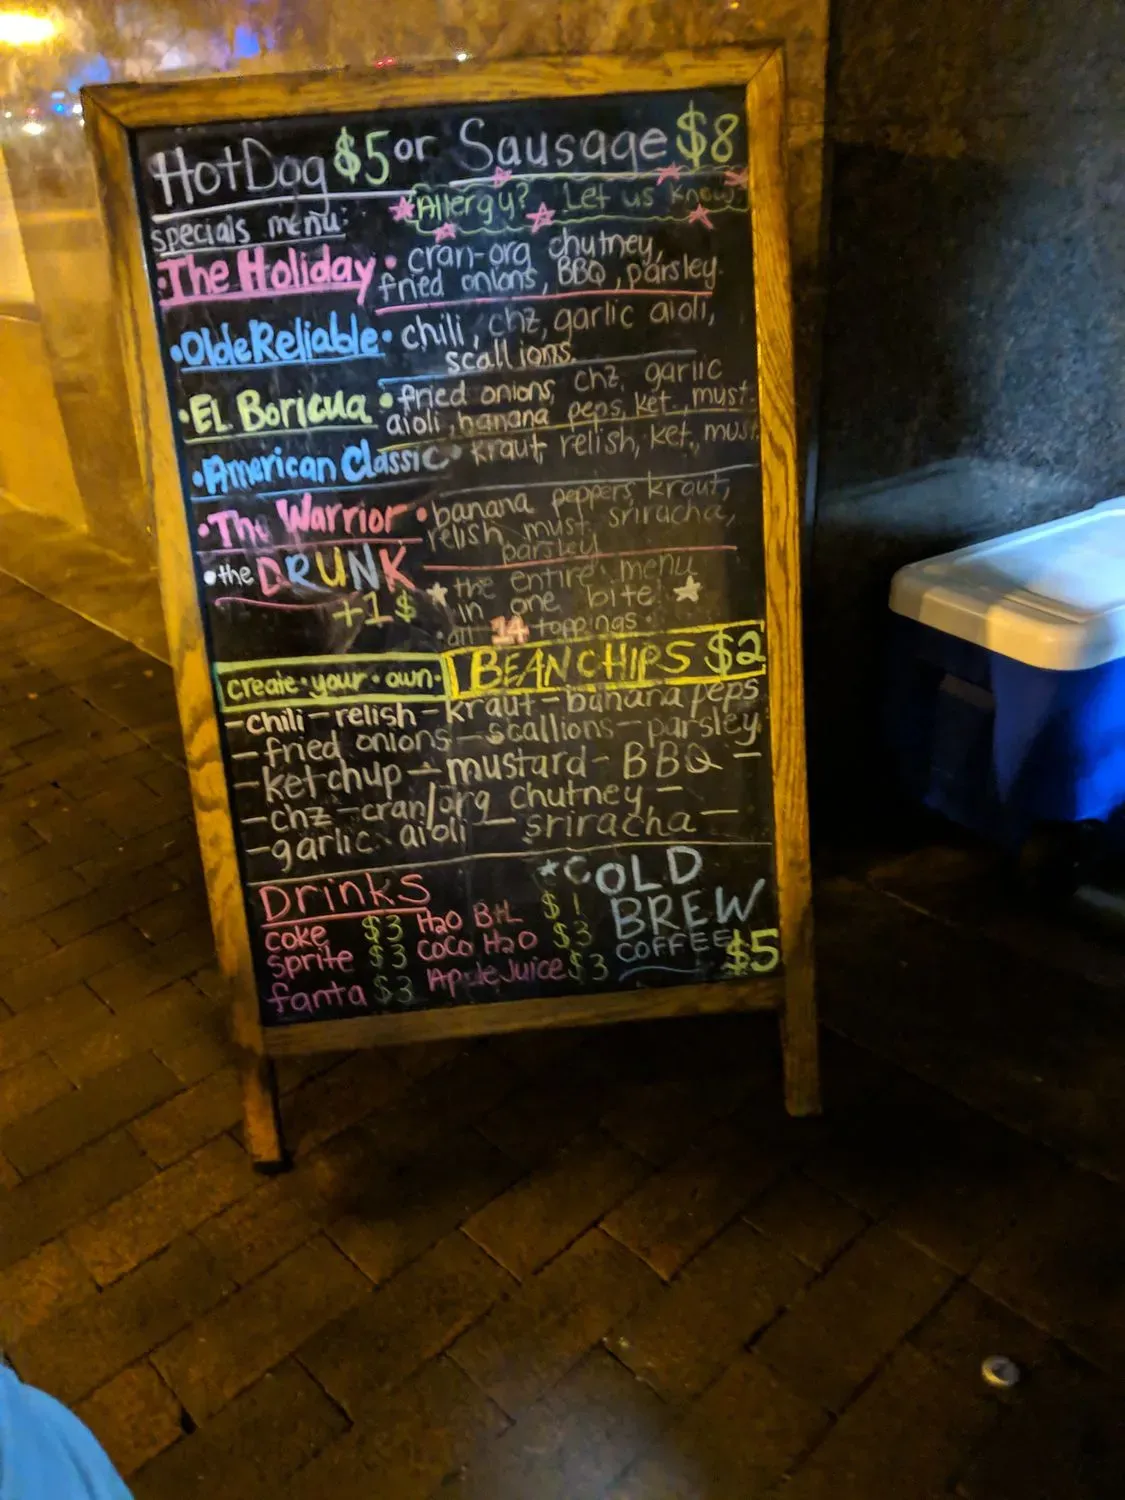 HotDog $5 or Sausage $8
specials menu: Allergy? Let us know
•The Holiday• cran-org chutney,
fried onions, BBQ, parsley
•Olde Reliable• chili, chz, garlic aioli,
scallions
•EL Boricua• fried onions, chz, garlic
aioli, banana peps, ket., must.
•American Classic• kraut, relish, ket., must
•The Warrior• banana peppers, kraut,
relish, must, sriracha,
parsley
•the DRUNK the entire menu
+1$ in one bite!
•all 14 toppings•
create•your•own• BEAN CHIPS $2
-chili-relish-kraut-banana peps
-fried onions-scallions-parsley
-ketchup-mustard-BBQ-
-chz-cran/org chutney-
-garlic aioli-sriracha-
Drinks COLD
coke $3 H2O Btl $1 BREW
sprite $3 CoCo H2O $3 COFFEE $5
fanta $3 Apple Juice $3